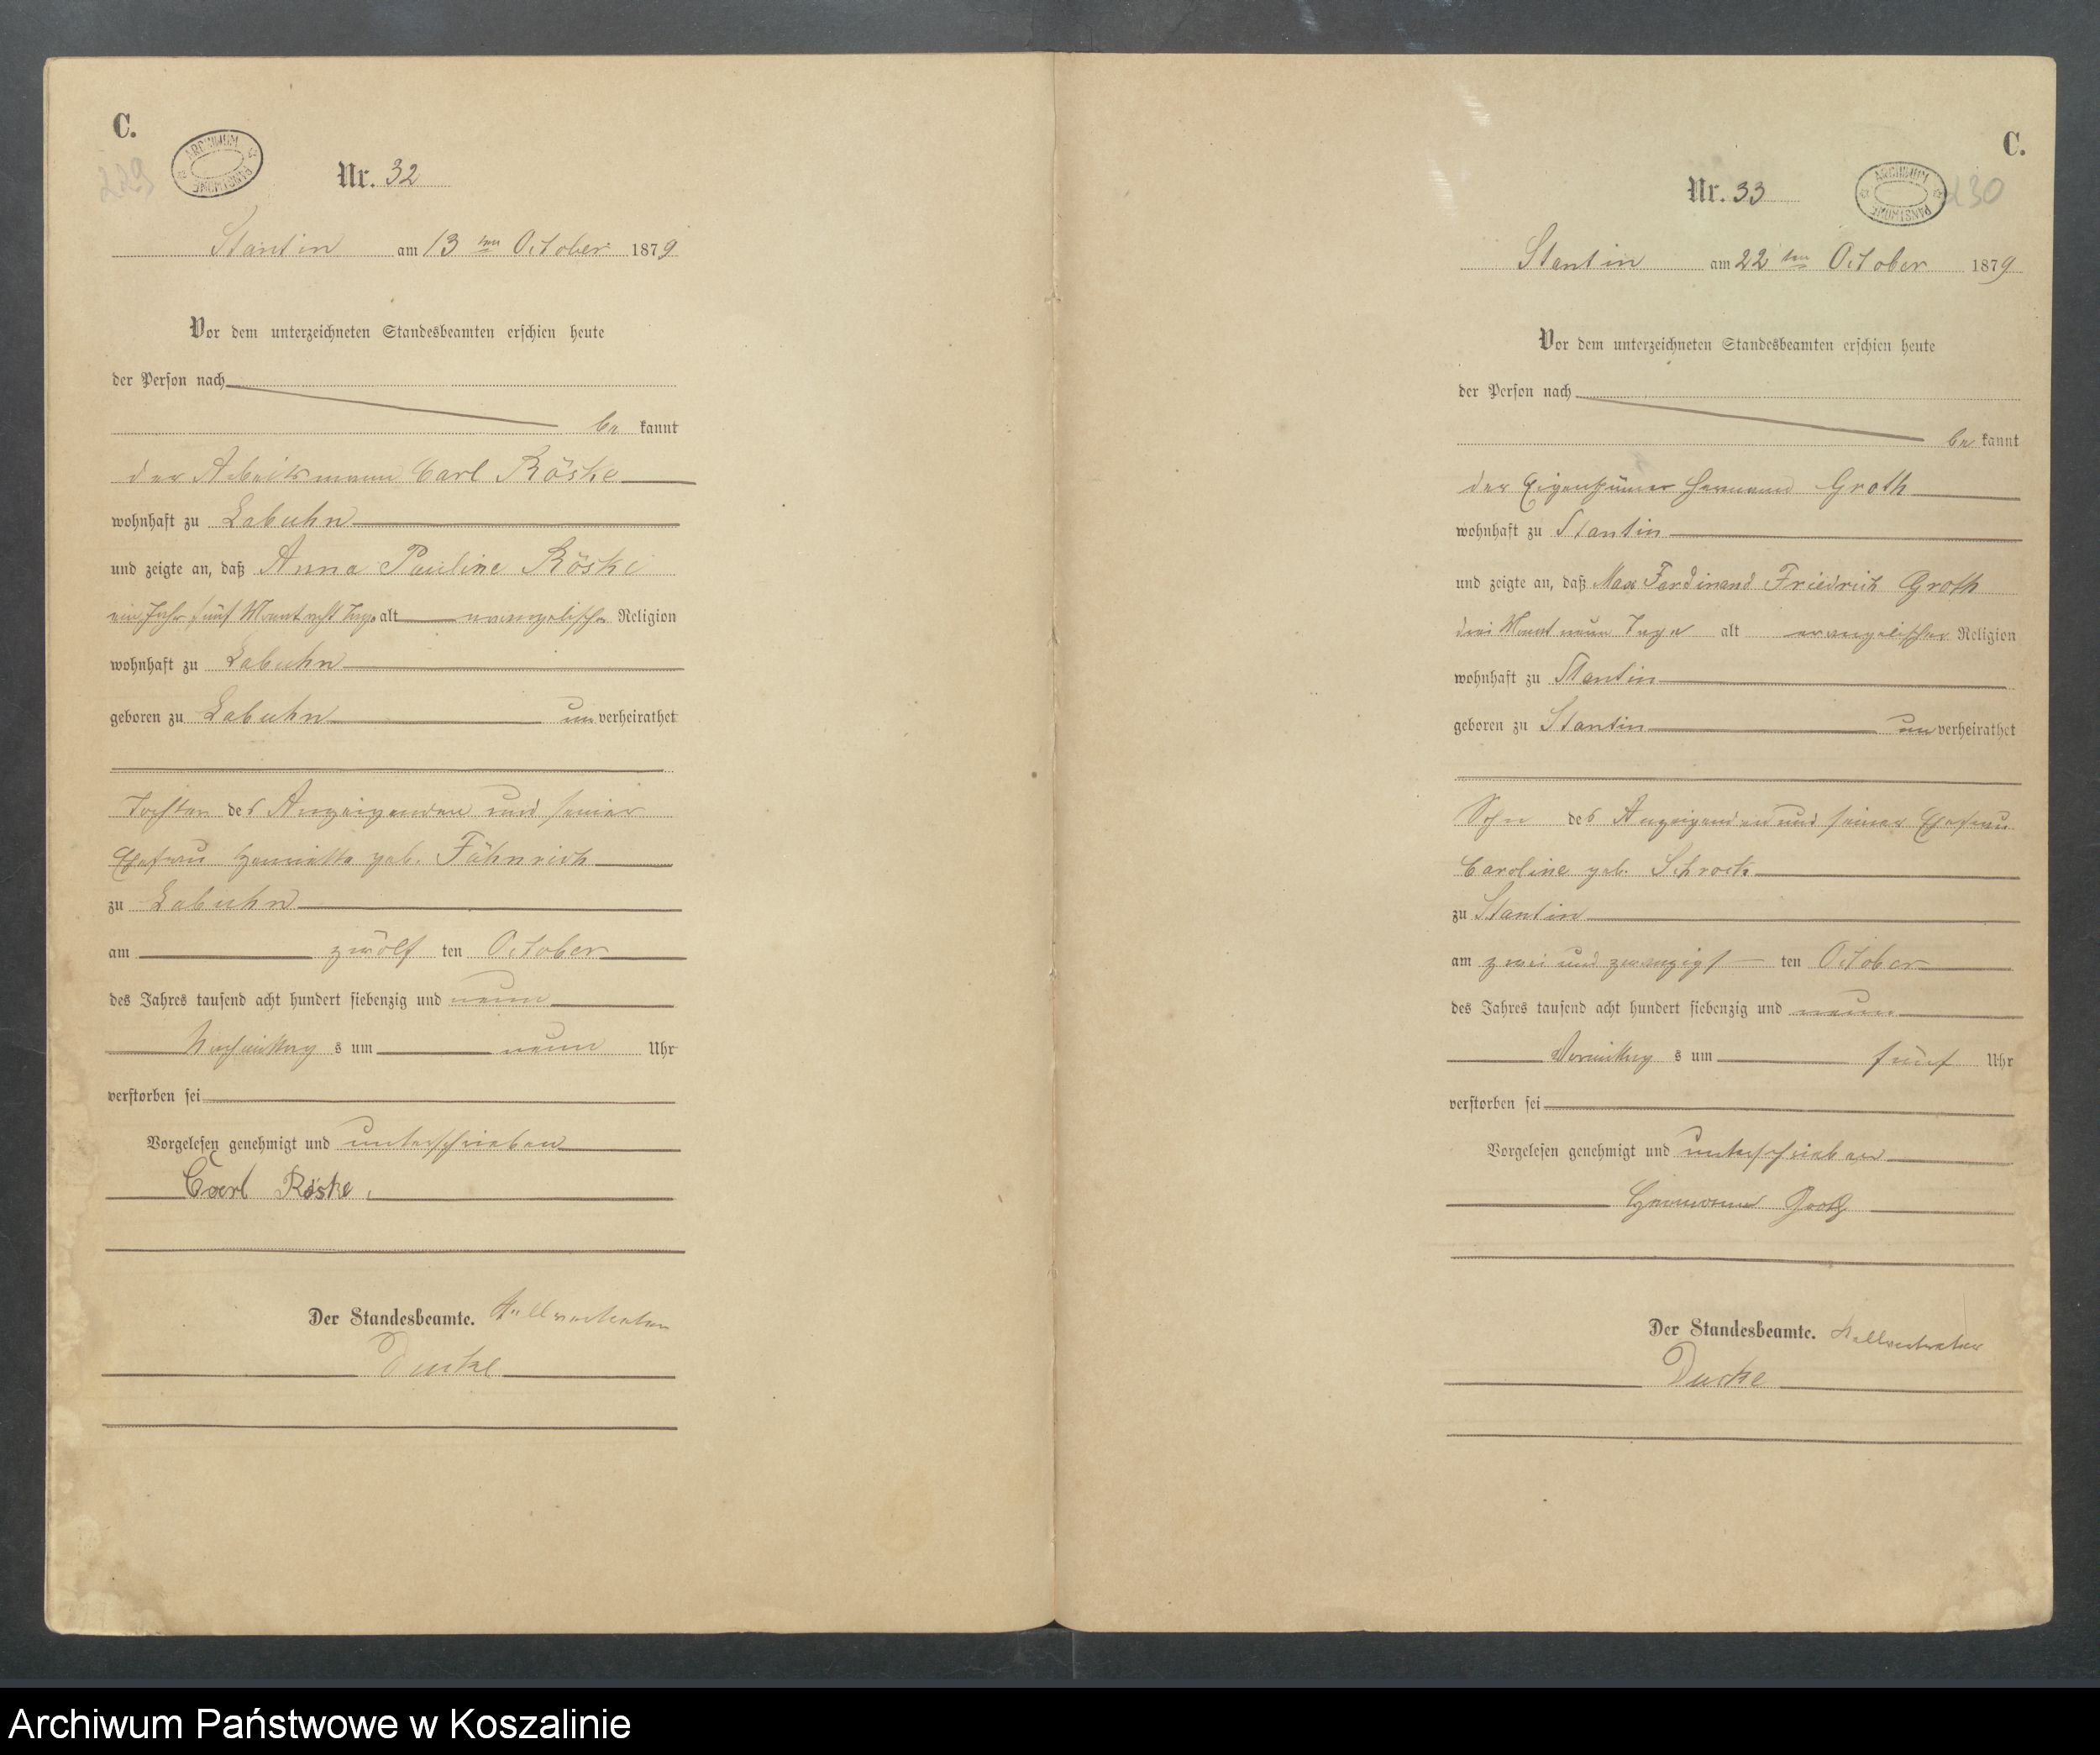 C.
229
ARCHIWUM PAŃSTWOWE
Nr. 32
Stantin am 13ten October 1879
Vor dem unterzeichneten Standesbeamten erschien heute
der Person nach
be kannt
der Arbeitsmann Carl Röske
wohnhaft zu Labuhn
und zeigte an, daß Anna Pauline Röske
ein Jahr fünf Monat acht Tage alt evangelischer Religion
wohnhaft zu Labuhn
geboren zu Labuhn un verheirathet
Tochter des Anzeigenden und seiner
Ehefrau Henriette geb. Fähnrich
zu Labuhn
am zwölf ten October
des Jahres tausend acht hundert siebenzig und neun
Nachmittag s um neun Uhr
verstorben sei
Vorgelesen genehmigt und unterschrieben
Carl Röske.
Der Standesbeamte. Stellvertreter
C.
ARCHIWUM PAŃSTWOWE
Nr. 33
Stantin am 22ten October 1879
Vor dem unterzeichneten Standesbeamten erschien heute
der Person nach
be kannt
der Eigenthümer Hermann Groth
wohnhaft zu Stantin
und zeigte an, daß Max Ferdinand Friedrich Groth
drei Monat neun Tage alt evangelischer Religion
wohnhaft zu Stantin
geboren zu Stantin un verheirathet
Sohn des Anzeigenden und seiner Ehefrau
Caroline geb. Schrock
zu Stantin
am zwei und zwanzigs ten October
des Jahres tausend acht hundert siebenzig und neun
Vormittag s um fünf Uhr
verstorben sei
Vorgelesen genehmigt und unterschrieben
Hermann Groth
Der Standesbeamte. Stellvertreter
Archiwum Państwowe w Koszalinie